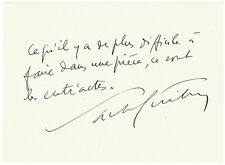 Ce qu'il y a de plus difficile à
faire dans une pièce, ce sont
les entr'actes.
Sacha Guitry